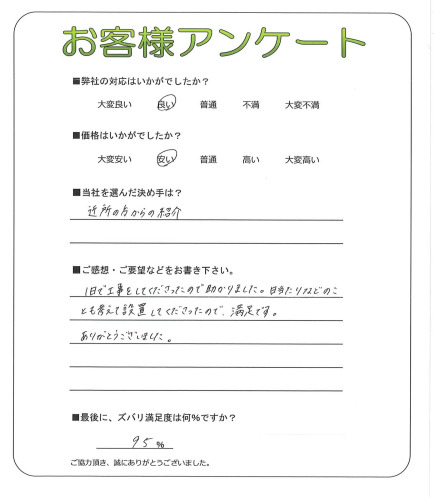 お客様アンケート
■弊社の対応はいかがでしたか？
大変良い 良い 普通 不満 大変不満
■価格はいかがでしたか？
大変安い 安い 普通 高い 大変高い
■当社を選んだ決め手は？
近所の方からの紹介
■ご感想・ご要望などをお書き下さい。
1日で工事をしてくださったので助かりました。日当たりなどのこ
とも考えて設置してくださったので、満足です。
ありがとうございました。
■最後に、ズバリ満足度は何％ですか？
95％
ご協力頂き、誠にありがとうございました。